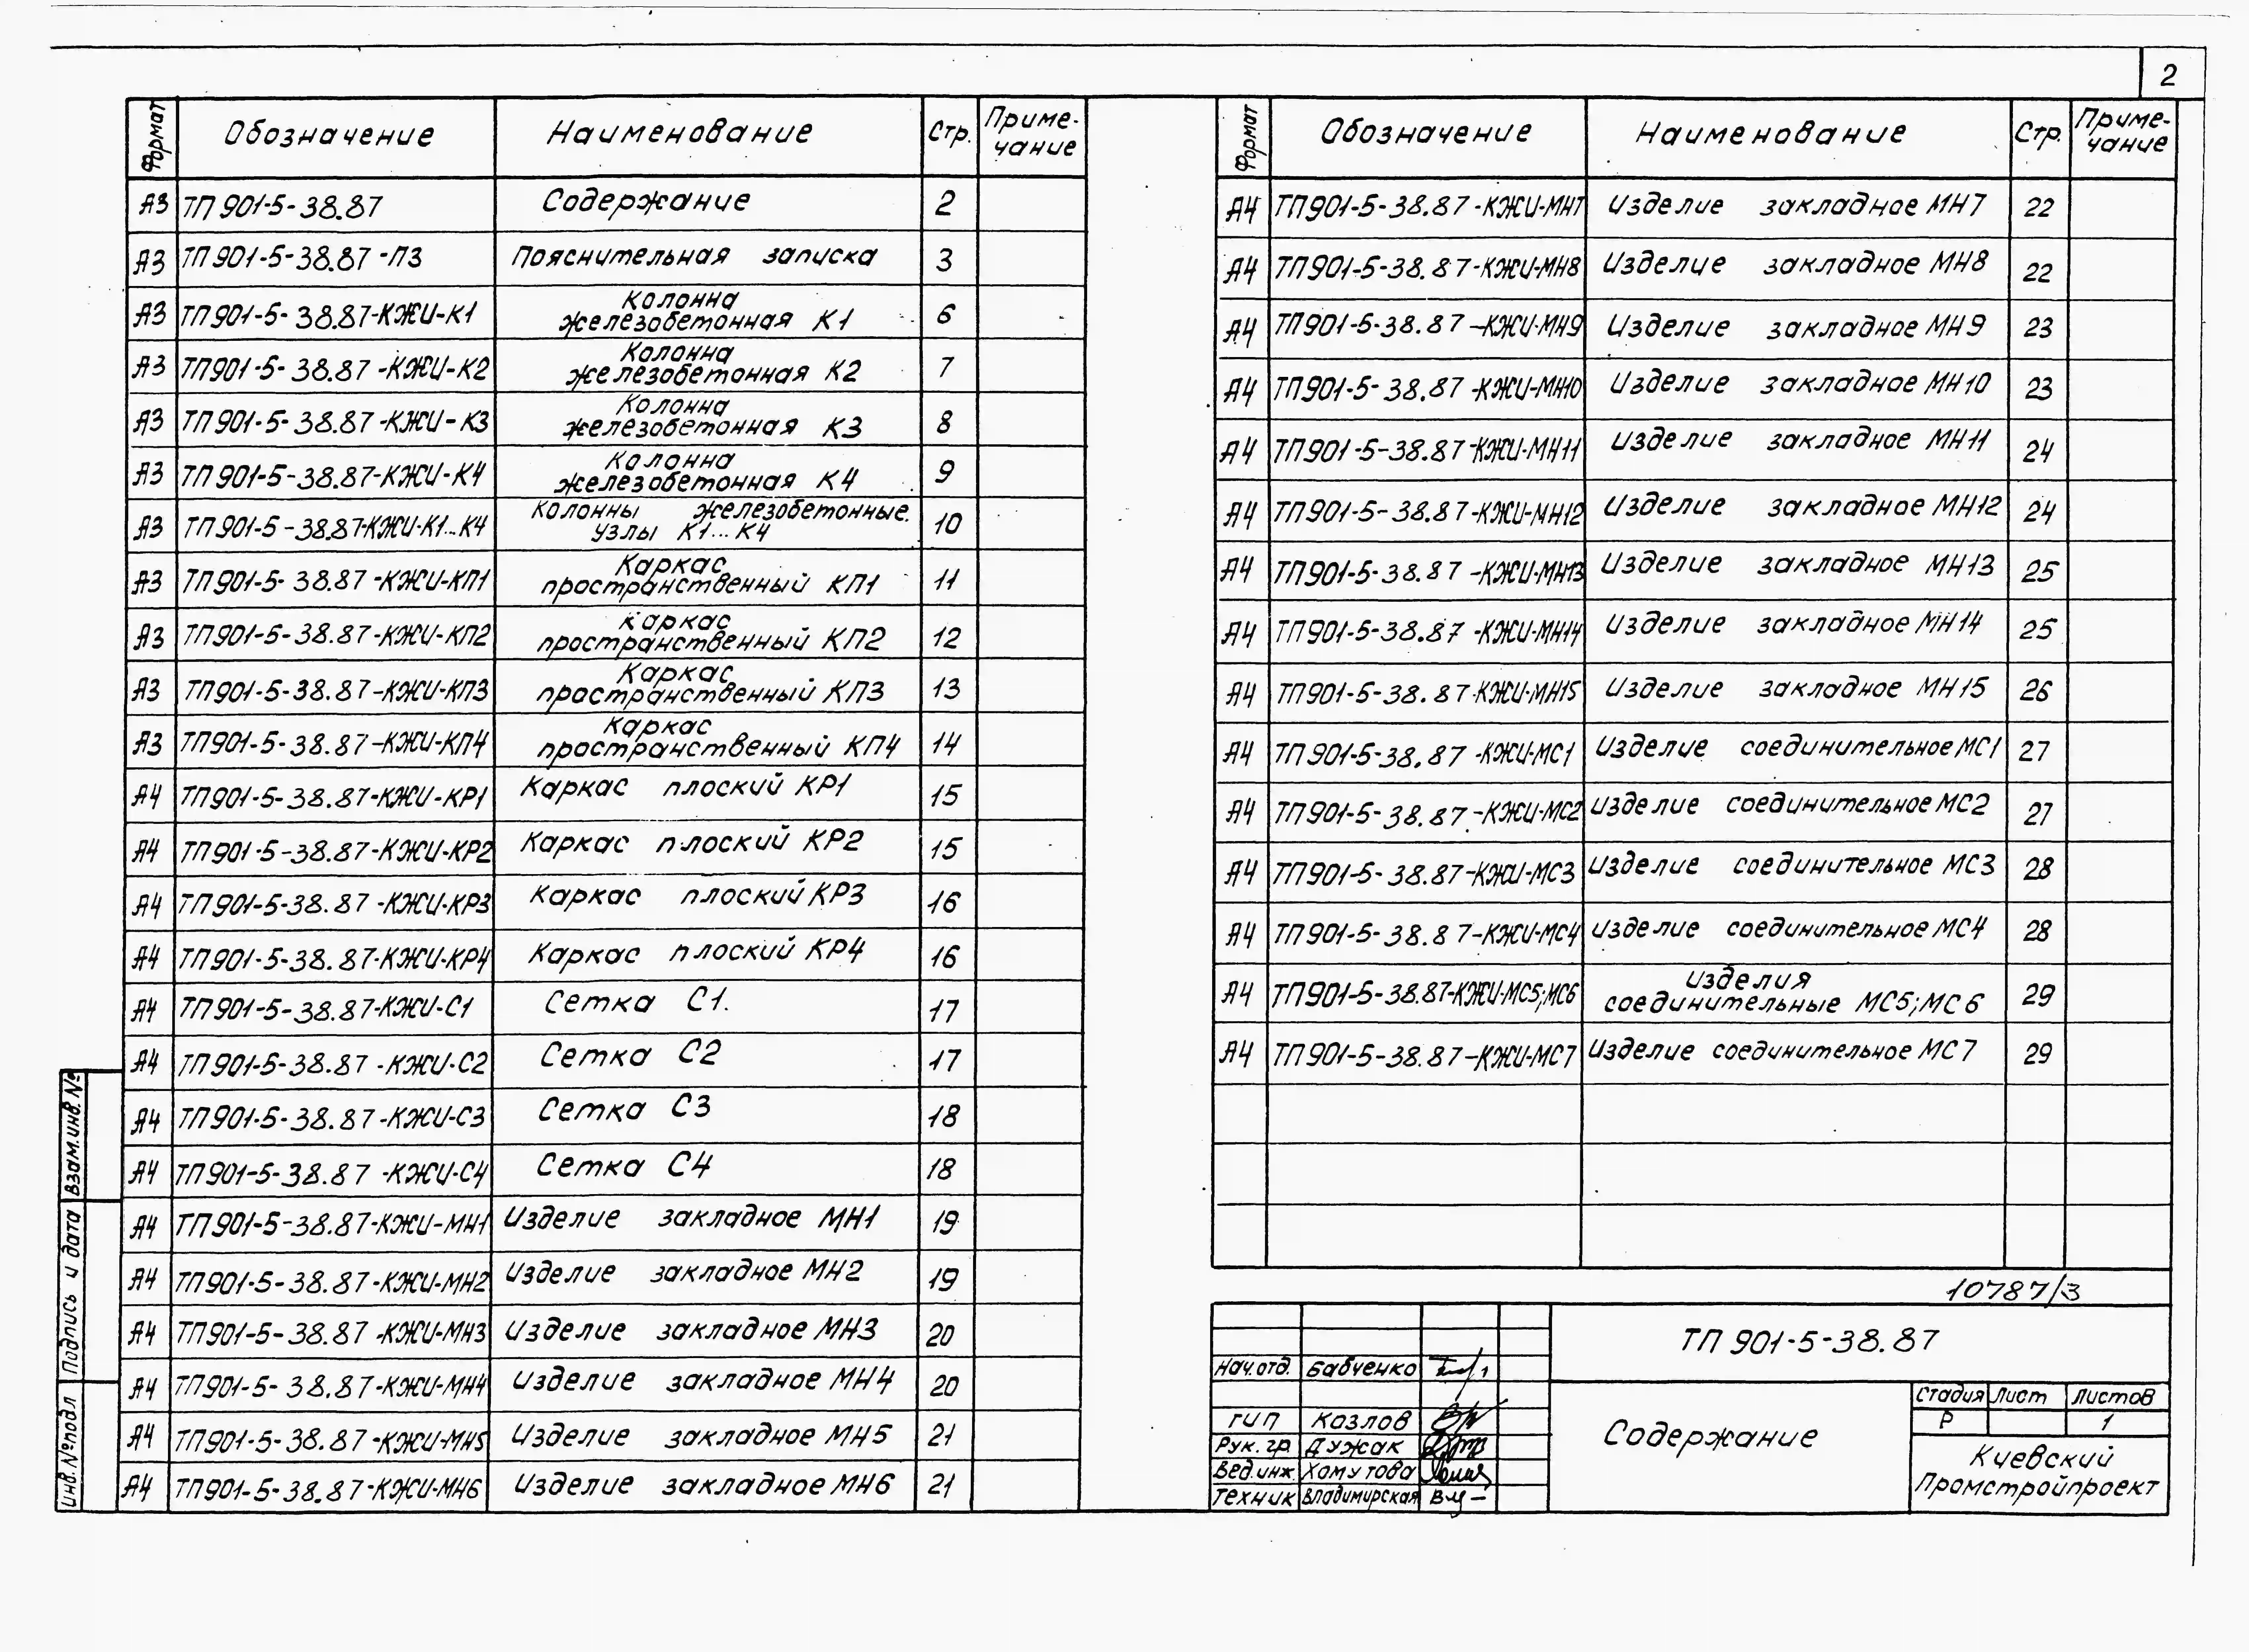 2
Формат Обозначение Наименование Стр. Приме-
чание
А3 ТП 901-5-38.87 Содержание 2
А3 ТП 901-5-38.87-ПЗ Пояснительная записка 3
А3 ТП 901-5-38.87-КЖИ-К1 Колонна
железобетонная К1 6
А3 ТП 901-5-38.87-КЖИ-К2 Колонна
железобетонная К2 7
А3 ТП 901-5-38.87-КЖИ-К3 Колонна
железобетонная К3 8
А3 ТП 901-5-38.87-КЖИ-К4 Колонна
железобетонная К4 9
А3 ТП 901-5-38.87-КЖИ-К1...К4 Колонны железобетонные.
Узлы К1...К4 10
А3 ТП 901-5-38.87-КЖИ-КП1 Каркас
пространственный КП1 11
А3 ТП 901-5-38.87-КЖИ-КП2 Каркас
пространственный КП2 12
А3 ТП 901-5-38.87-КЖИ-КП3 Каркас
пространственный КП3 13
А3 ТП 901-5-38.87-КЖИ-КП4 Каркас
пространственный КП4 14
А4 ТП 901-5-38.87-КЖИ-КР1 Каркас плоский КР1 15
А4 ТП 901-5-38.87-КЖИ-КР2 Каркас плоский КР2 15
А4 ТП 901-5-38.87-КЖИ-КР3 Каркас плоский КР3 16
А4 ТП 901-5-38.87-КЖИ-КР4 Каркас плоский КР4 16
А4 ТП 901-5-38.87-КЖИ-С1 Сетка С1. 17
А4 ТП 901-5-38.87-КЖИ-С2 Сетка С2 17
А4 ТП 901-5-38.87-КЖИ-С3 Сетка С3 18
А4 ТП 901-5-38.87-КЖИ-С4 Сетка С4 18
А4 ТП 901-5-38.87-КЖИ-МН1 Изделие закладное МН1 19
А4 ТП 901-5-38.87-КЖИ-МН2 Изделие закладное МН2 19
А4 ТП 901-5-38.87-КЖИ-МН3 Изделие закладное МН3 20
А4 ТП 901-5-38.87-КЖИ-МН4 Изделие закладное МН4 20
А4 ТП 901-5-38.87-КЖИ-МН5 Изделие закладное МН5 21
А4 ТП 901-5-38.87-КЖИ-МН6 Изделие закладное МН6 21
Взам.инв.№
Подпись и дата
Инв.№подл
Формат Обозначение Наименование Стр. Приме-
чание
А4 ТП 901-5-38.87-КЖИ-МН7 Изделие закладное МН7 22
А4 ТП 901-5-38.87-КЖИ-МН8 Изделие закладное МН8 22
А4 ТП 901-5-38.87-КЖИ-МН9 Изделие закладное МН9 23
А4 ТП 901-5-38.87-КЖИ-МН10 Изделие закладное МН10 23
А4 ТП 901-5-38.87-КЖИ-МН11 Изделие закладное МН11 24
А4 ТП 901-5-38.87-КЖИ-МН12 Изделие закладное МН12 24
А4 ТП 901-5-38.87-КЖИ-МН13 Изделие закладное МН13 25
А4 ТП 901-5-38.87-КЖИ-МН14 Изделие закладное МН14 25
А4 ТП 901-5-38.87-КЖИ-МН15 Изделие закладное МН15 26
А4 ТП 901-5-38.87-КЖИ-МС1 Изделие соединительное МС1 27
А4 ТП 901-5-38.87-КЖИ-МС2 Изделие соединительное МС2 27
А4 ТП 901-5-38.87-КЖИ-МС3 Изделие соединительное МС3 28
А4 ТП 901-5-38.87-КЖИ-МС4 Изделие соединительное МС4 28
А4 ТП 901-5-38.87-КЖИ-МС5;МС6 Изделия
соединительные МС5;МС6 29
А4 ТП 901-5-38.87-КЖИ-МС7 Изделие соединительное МС7 29
10787/3
ТП 901-5-38.87
Нач.отд. Бабченко
ГИП Козлов
Рук.гр. Дужак
Вед.инж. Хомутова
Техник Владимирская
Содержание
Стадия Лист Листов
Р 1
Киевский
Промстройпроект